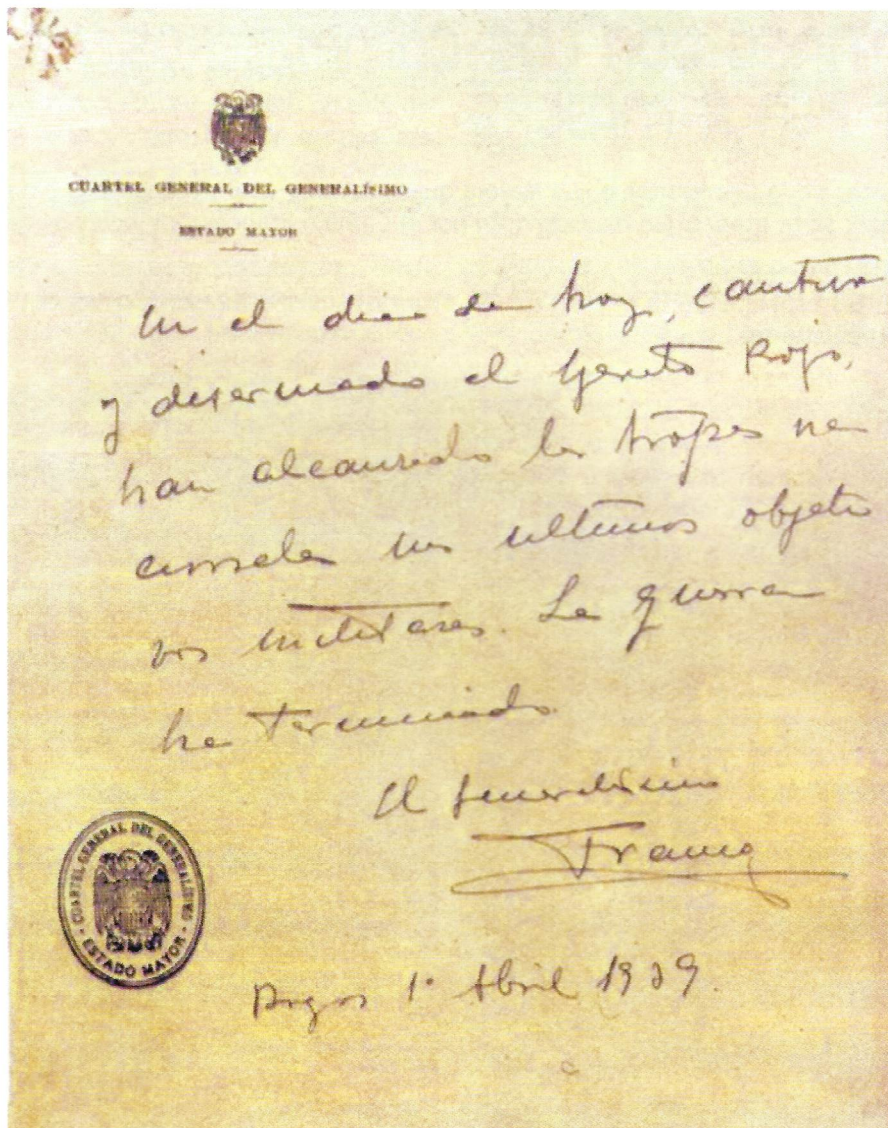 CUARTEL GENERAL DEL GENERALÍSIMO
ESTADO MAYOR
En el dia de hoy, cautivo
y desarmado el Ejercito Rojo,
han alcanzado las tropas na
cionales sus ultimos objeti
vos militares. La guerra
ha terminado
El Generalisimo
Franco
CUARTEL GENERAL DEL GENERALÍSIMO
· ESTADO MAYOR ·
Burgos 1º Abril 1939.